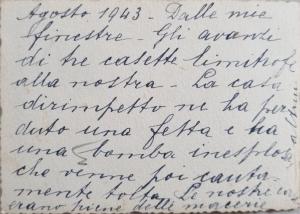 Agosto 1943 - Dalle mie
finestre - Gli avanzi
di tre casette limitrofe
alla nostra - La casa
dirimpetto ne ha per
duto una fetta e ha
una bomba inesplosa
che venne poi cauta-
mente tolta. Le nostre
erano piene delle macerie